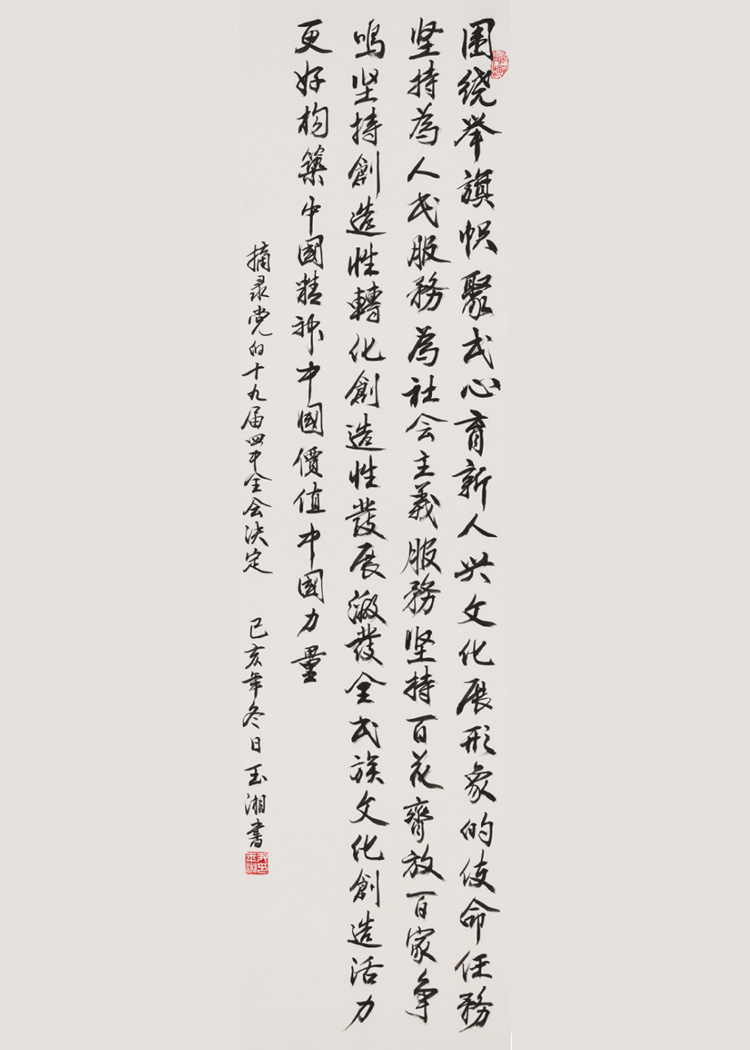 围绕举旗帜聚民心育新人兴文化展形象的使命任務
坚持為人民服務為社会主義服務坚持百花齊放百家争
鸣坚持創造性轉化創造性發展激發全民族文化創造活力
更好构築中國精神中國價值中國力量
摘录党的十九届四中全会決定 己亥年冬日玉湘書